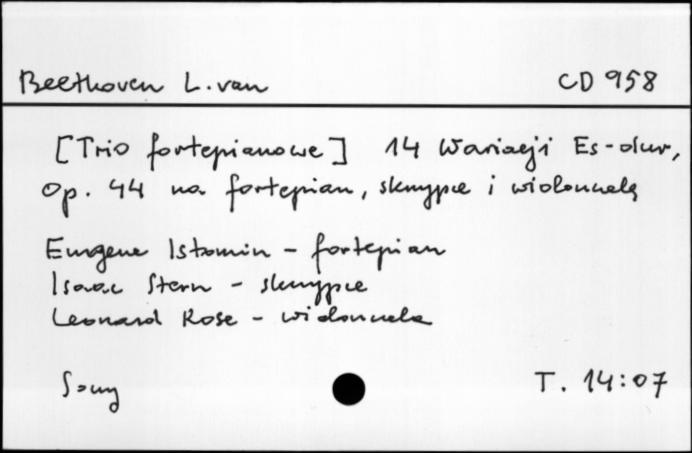 Beethoven L. van CD 958
[Trio fortepianowe] 14 Wariacji Es-dur,
Op. 44 na fortepian, skrzypce i wiolonczelę
Eugene Istomin - fortepian
Isaac Stern - skrzypce
Leonard Rose - wiolonczela
Sony T. 14:07